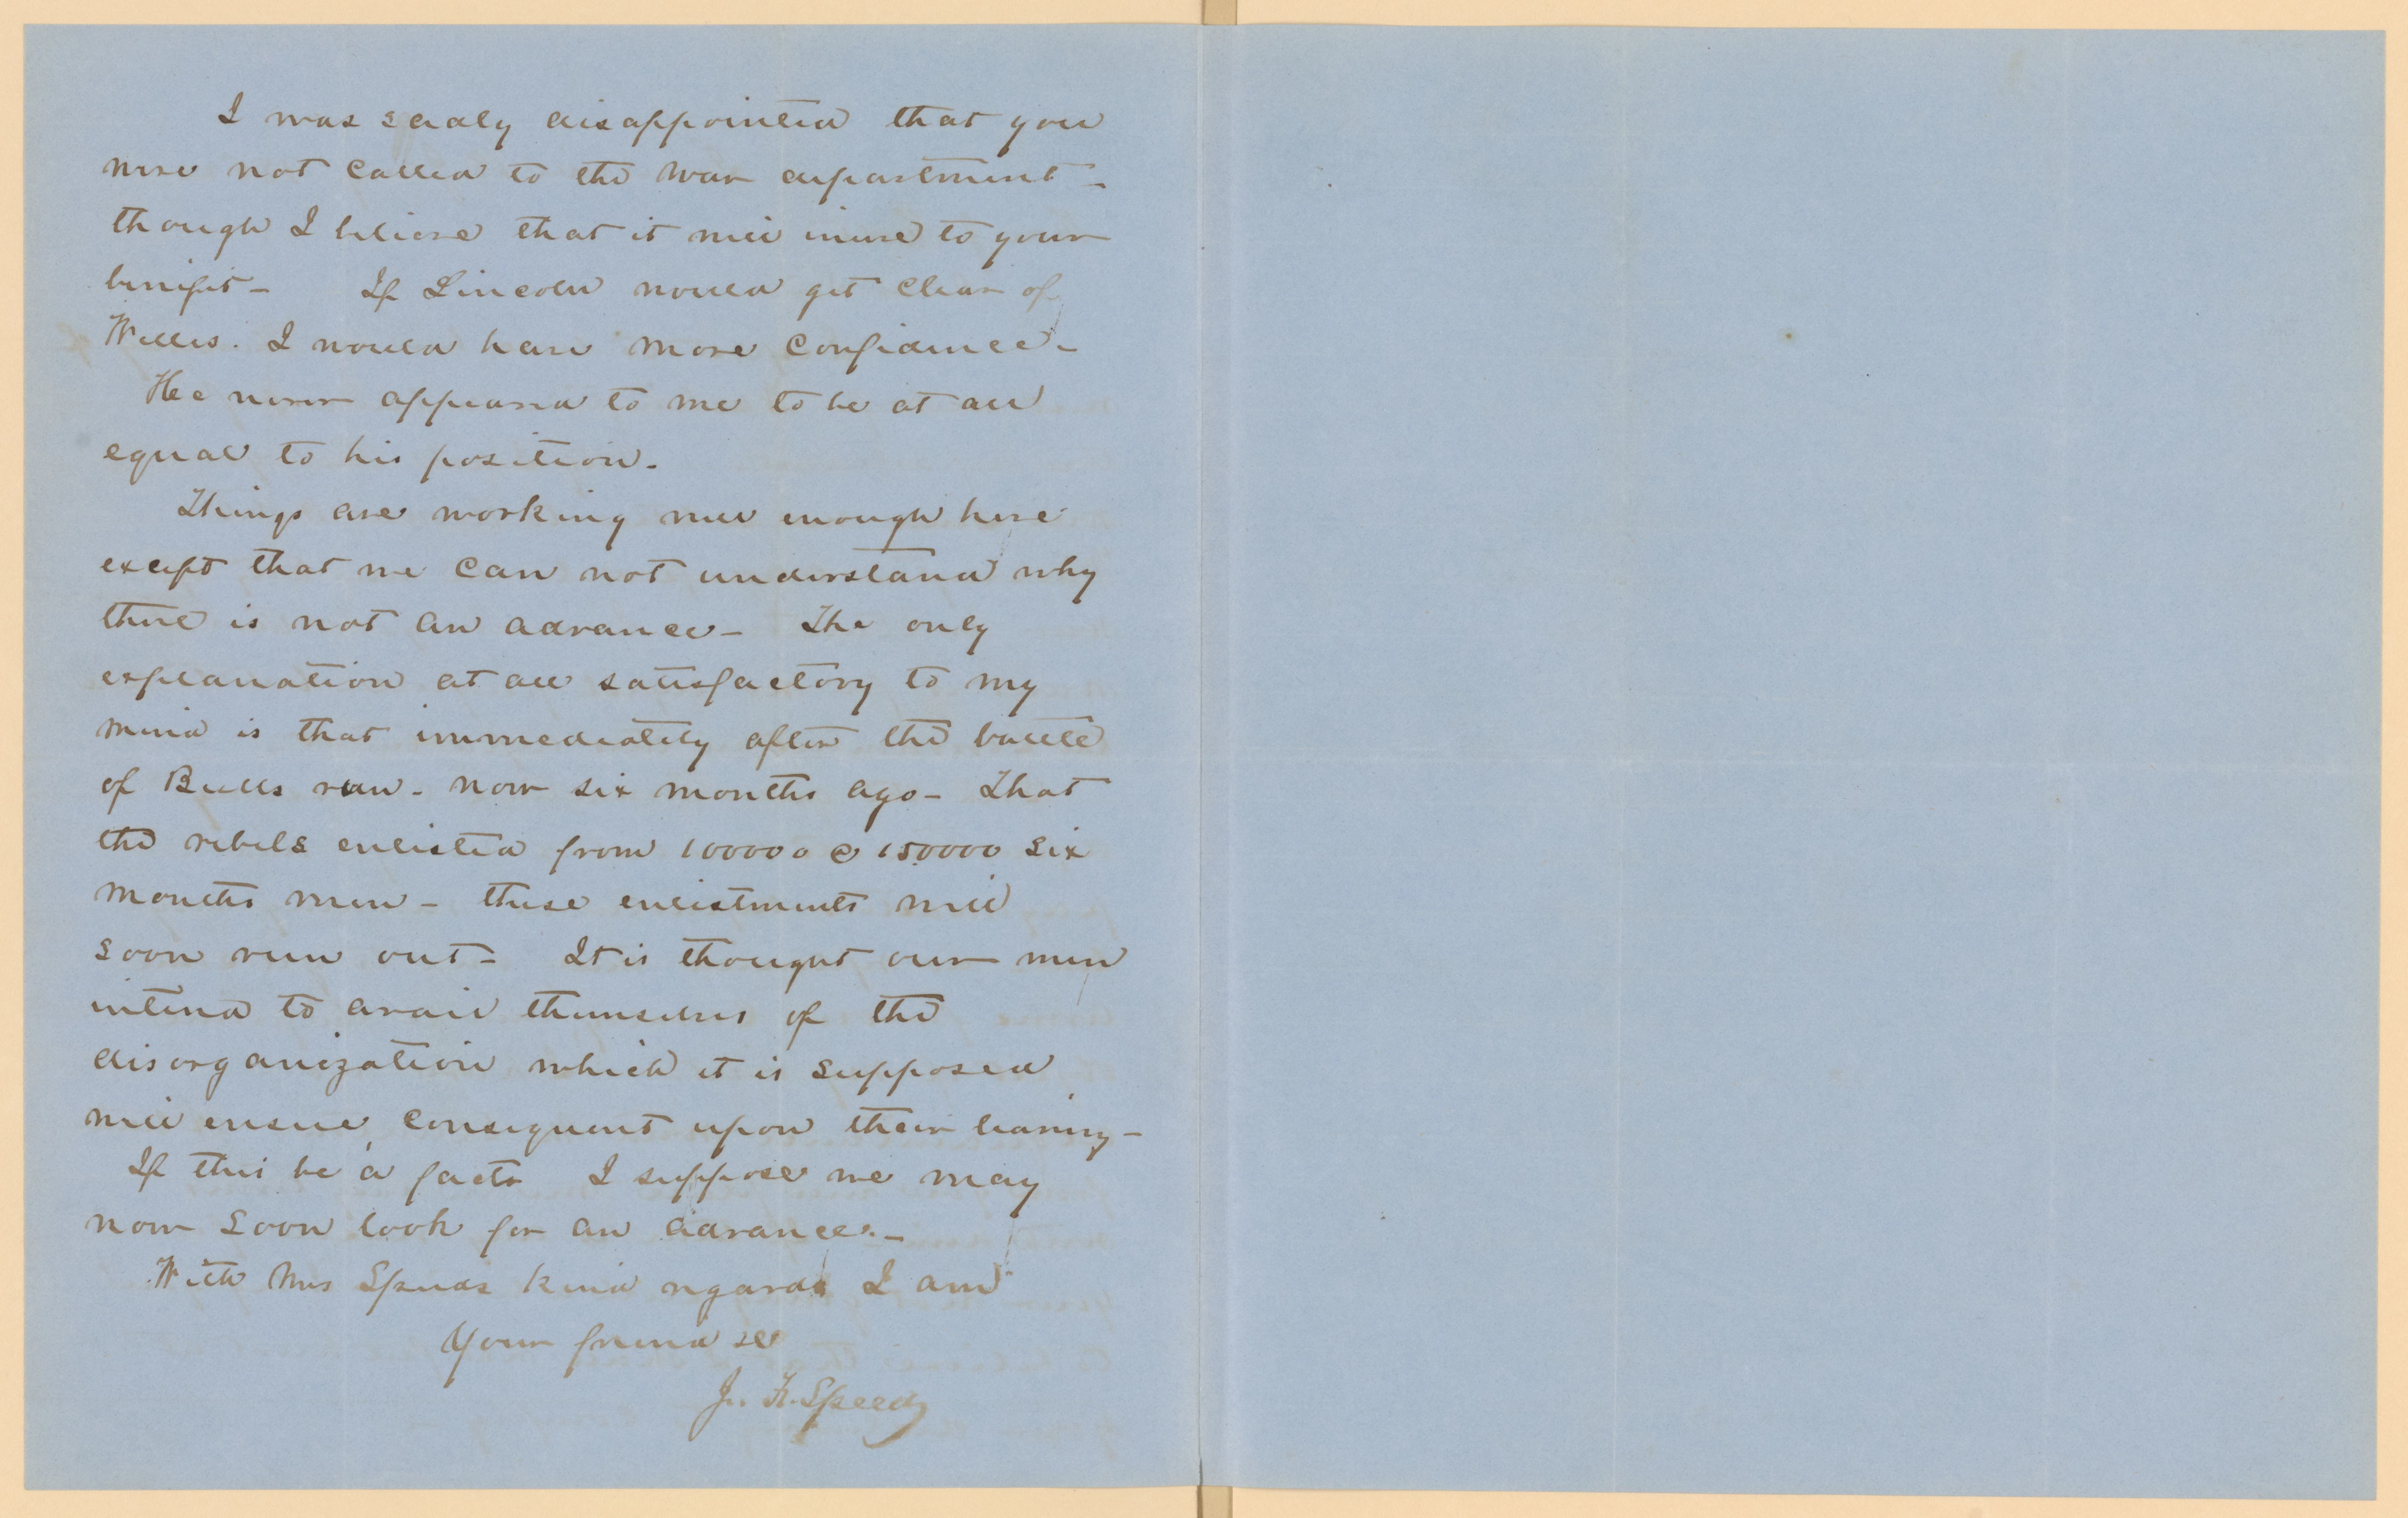 I was sadly disappointed that you
were not called to the war department -
though I believe that it will inure to your
benifit - If Lincoln would get clear of
Welles. I would have more confidence -
He never appeared to me to be at all
equal to his position.
Things are working well enough here
except that we can not understand why
there is not an advance - The only
explanation at all satisfactory to my
mind is that immediately after the battle
of Bulls run - now six months ago - That
the rebels enlisted from 100000 @ 150000 six
months men - these enlistments will
soon run out - It is thought our men
intend to avail themselves of the
disorganization which it is supposed
will ensue, consequent upon their leaving -
If this be a fact I suppose we may
now soon look for an advance -
With Mrs Speeds kind regards I am
Your friend &c
J. F. Speed